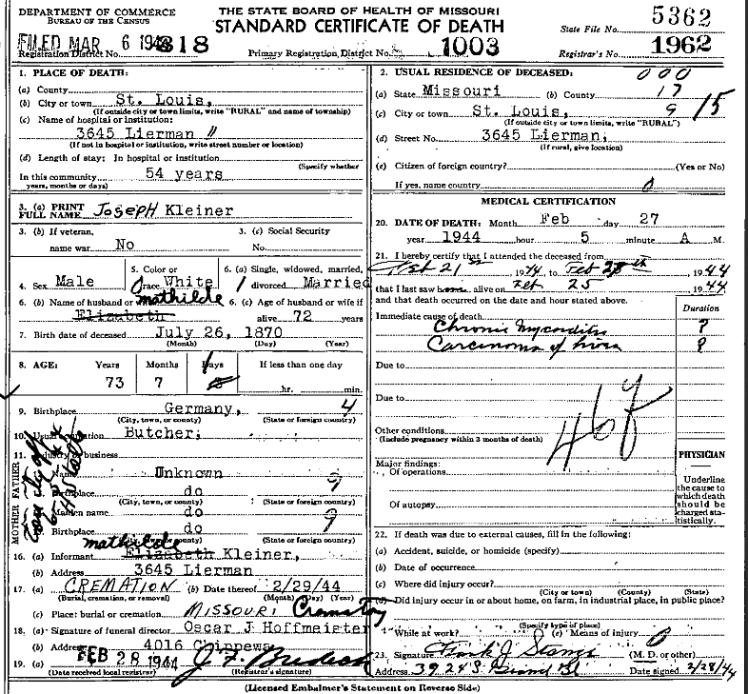 DEPARTMENT OF COMMERCE
BUREAU OF THE CENSUS
THE STATE BOARD OF HEALTH OF MISSOURI
STANDARD CERTIFICATE OF DEATH
State File No. 5362
FILED MAR 6 1944
Registration District No. 318
Primary Registration District No. 1003
Registrar's No. 1962
1. PLACE OF DEATH:
(a) County
(b) City or town St. Louis,
(If outside city or town limits, write "RURAL" and name of township)
(c) Name of hospital or institution:
3645 Lierman
(If not in hospital or institution, write street number or location)
(d) Length of stay: In hospital or institution
(Specify whether
In this community 54 years
years, months or days)
3. (a) PRINT FULL NAME Joseph Kleiner
3. (b) If veteran, name war No
3. (c) Social Security No.
4. Sex Male
5. Color or race White
6. (a) Single, widowed, married, divorced Married
6. (b) Name of husband or Elizabeth mathilde
6. (c) Age of husband or wife if alive 72 years
7. Birth date of deceased July 26, 1870
(Month) (Day) (Year)
8. AGE: Years Months Days If less than one day
73 7 1 hr. min.
9. Birthplace Germany, 4
(City, town, or county) (State or foreign country)
10. Usual occupation Butcher,
11. Industry or business
FATHER
Name Unknown
Birthplace do 9
(City, town, or county) (State or foreign country)
MOTHER
Maiden name do
Birthplace do 9
(City, town, or county) (State or foreign country)
16. (a) Informant mathilde Elizabeth Kleiner,
(b) Address 3645 Lierman
17. (a) CREMATION (b) Date thereof 2/29/44
(Burial, cremation, or removal) (Month) (Day) (Year)
(c) Place: burial or cremation MISSOURI Crematory
18. (a) Signature of funeral director Oscar J Hoffmeister
(b) Address 4016 Chippewa
19. (a) FEB 28 1944 J. F. Bredeck
(Date received local registrar) (Registrar's signature)
2. USUAL RESIDENCE OF DECEASED: 000
(a) State Missouri (b) County 17
(c) City or town St. Louis, 9 15
(If outside city or town limits, write "RURAL")
(d) Street No. 3645 Lierman,
(If rural, give location)
(e) Citizen of foreign country? (Yes or No)
If yes, name country 0
MEDICAL CERTIFICATION
20. DATE OF DEATH: Month Feb day 27
year 1944 hour 5 minute A M.
21. I hereby certify that I attended the deceased from
Feb 21st 1944 to Feb 28th 1944
that I last saw alive on Feb 25 1944
and that death occurred on the date and hour stated above.
Duration
Immediate cause of death
Chronic Myocarditis ?
Carcinoma of liver ?
Due to
Due to
Other conditions
(Include pregnancy within 3 months of death)
Major findings:
Of operations
Of autopsy
PHYSICIAN
Underline the cause to which death should be charged statistically.
22. If death was due to external causes, fill in the following:
(a) Accident, suicide, or homicide (specify)
(b) Date of occurrence
(c) Where did injury occur?
(City or town) (County) (State)
(d) Did injury occur in or about home, on farm, in industrial place, in public place?
(Specify type of place)
While at work? (e) Means of injury 0
23. Signature Frank J. (M. D. or other)
Address 3924 S. Grand Bl Date signed 2/28/44
(Licensed Embalmer's Statement on Reverse Side)